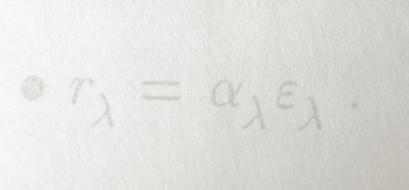 • r_λ = α_λ ε_λ .